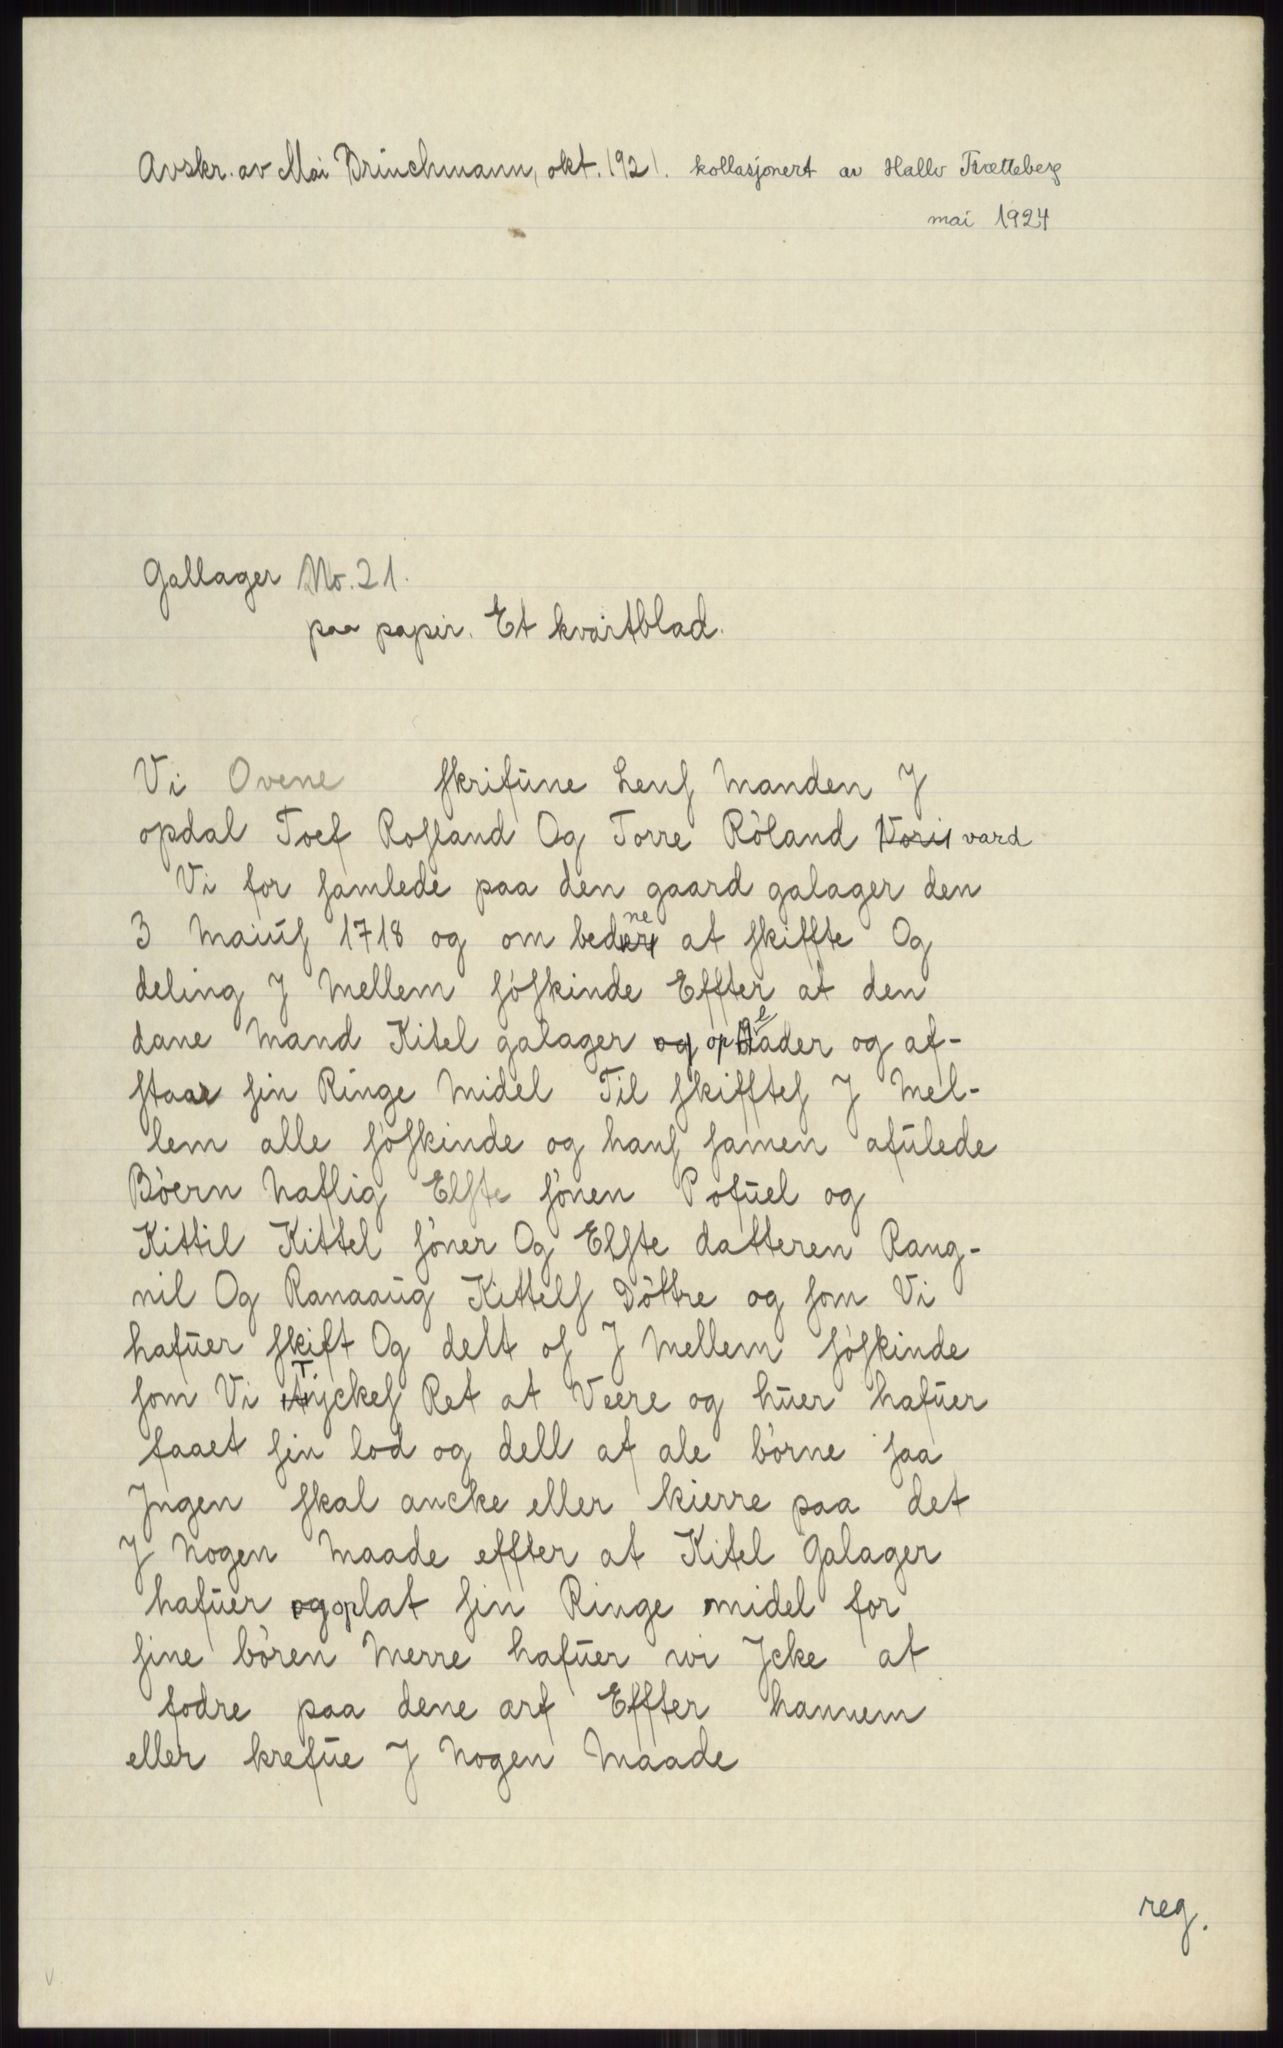 Avskr. av Mai Brinchmann, okt. 1921. kollasjonert av Hallv Trætteberg
mai 1924
Gallager No. 21.
paa papir. Et kvartblad.
Vi Ovene skrifúne Lens Manden J
opdal Toef Rosland Og Torre Röland vard
Vi for samlede paa den gaard galager den
3 Maiús 1718 og om bedne at skiffte Og
deling J Mellem söskinde Effter at den
dane Mand Kitel galager oplader og af-
staar sin Ringe Midel Til skifftes J Mel-
lem alle söskinde og hans samen afúlede
Böern Naflig Elste sönen Pofúel og
Kittil Kittel söner Og Elste datteren Rang-
nil Og Ranaaúg Kittels Döttre og som Vi
hafúer skift Og delt os J Mellem söskinde
som Vi Tyckes Ret at Veere og húer hafúer
faaet sin lod og dell af ale börne saa
Jngen skal ancke eller kierre paa det
J Nogen Maade effter at Kitel Galager
hafúer oplat sin Ringe midel for
sine bören Merre hafúer wi Jcke at
fodre paa dene arf Effter hannem
eller krefúe J Nogen Maade
reg.